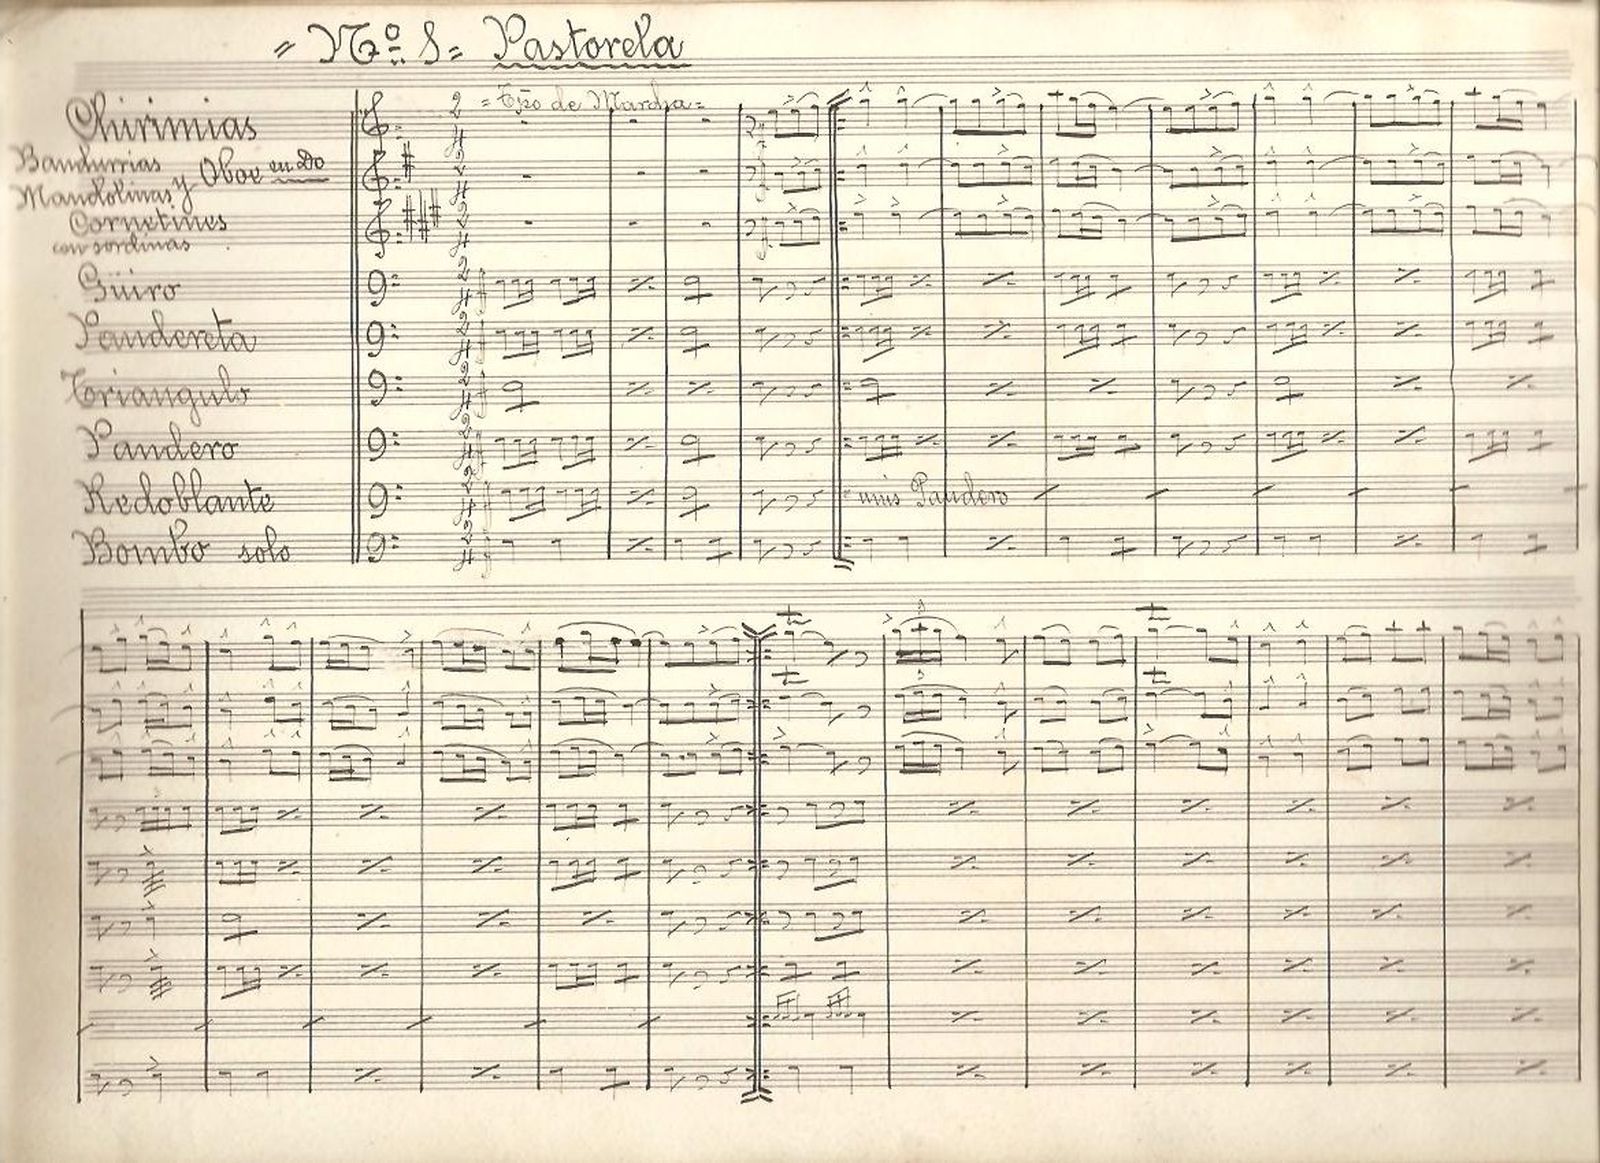 = Nº 1 = Pastorela
= Tpo de Marcha =
Chirimias
Bandurrias
Oboe en Do
Mandolinas y
Cornetines
con sordinas
Güiro
Pandereta
Triangulo
Pandero
Redoblante
unis Pandero
Bombo solo